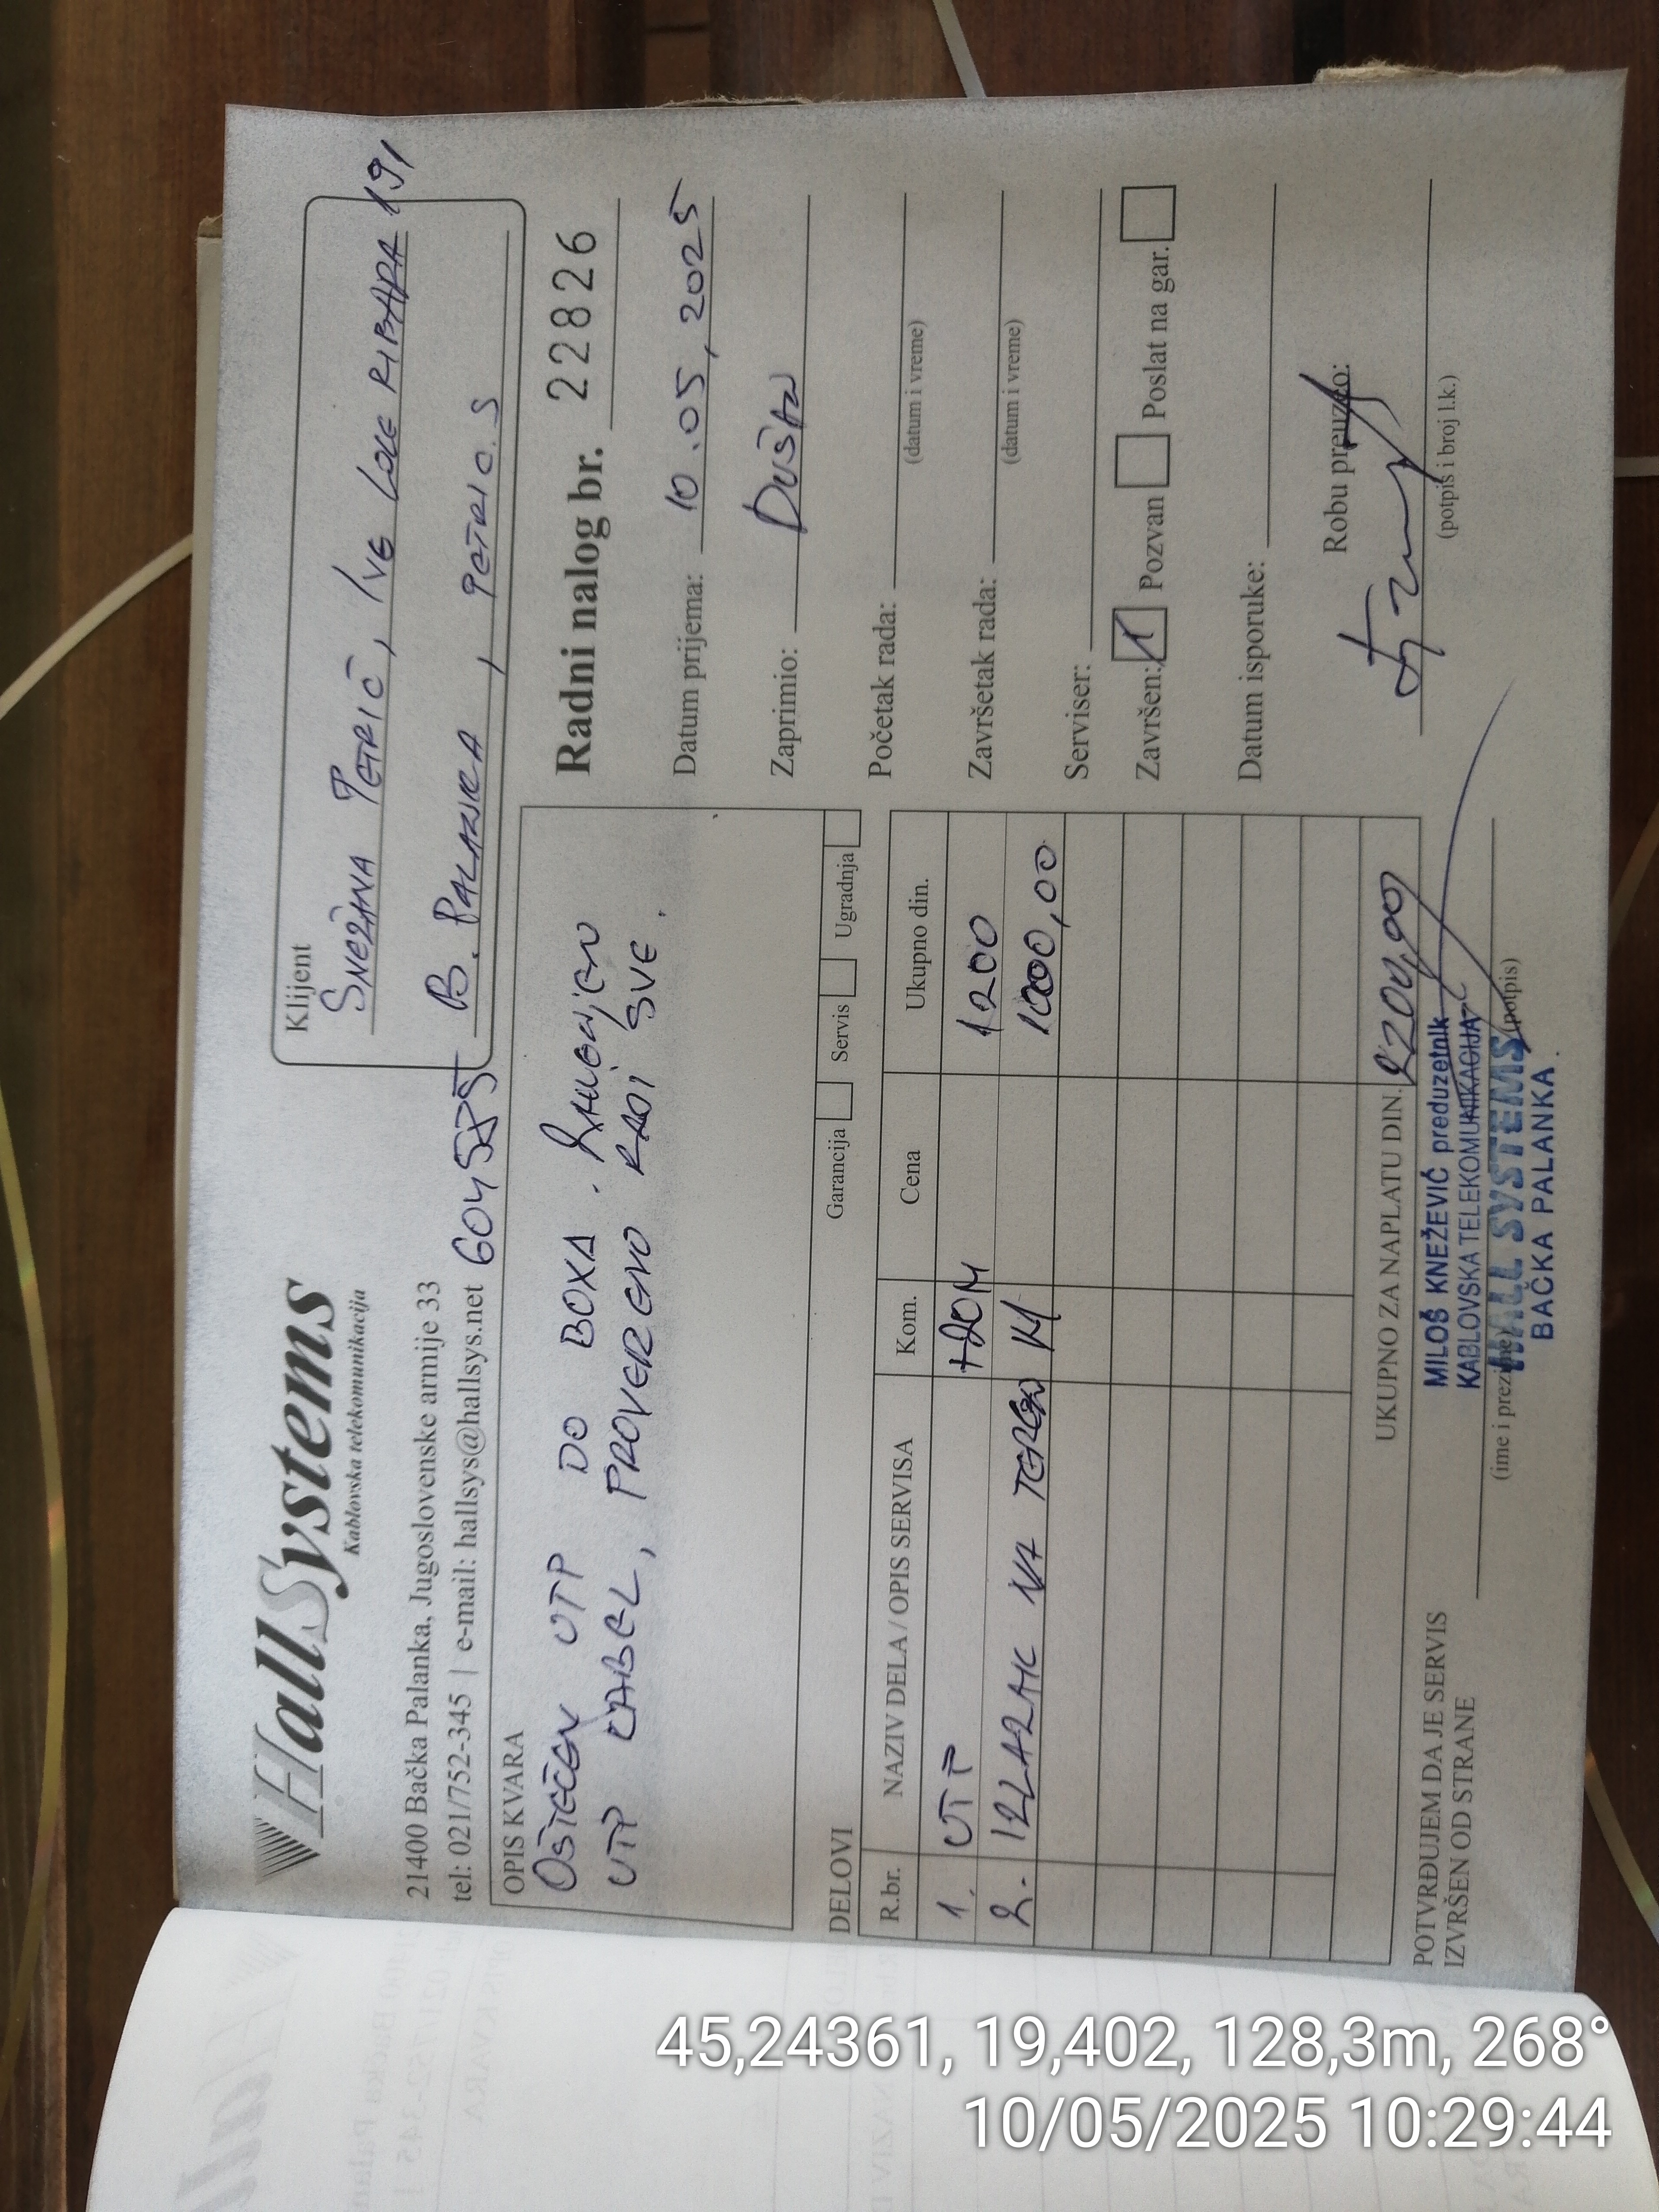 HallSystems
Kablovska telekomunikacija
21400 Bačka Palanka, Jugoslovenske armije 33
tel: 021/752-345 | e-mail: hallsys@hallsys.net
Klijent
SNEŽANA PETRIĆ, IVE LOLE RIBARA 191
B. PALANKA, PETRIC.S
OPIS KVARA
OŠTEĆEN UTP DO BOXA. ZAMENJEN
UTP KABEL, PROVERENO RADI SVE.
Radni nalog br. 22826
Datum prijema: 10.05,2025
Zaprimio: DUŠAN
Početak rada:
(datum i vreme)
Završetak rada:
(datum i vreme)
Serviser:
Završen: Pozvan Poslat na gar.
Datum isporuke:
Robu preuzeo:
(potpis i broj l.k.)
Garancija Servis Ugradnja
DELOVI
R.br. NAZIV DELA / OPIS SERVISA Kom. Cena Ukupno din.
1. UTP 1200
2. IZLAZAK NA TEREN 1000,00
UKUPNO ZA NAPLATU DIN. 2200,00
POTVRĐUJEM DA JE SERVIS
IZVRŠEN OD STRANE
(ime i prezime) (potpis)
MILOŠ KNEŽEVIĆ preduzetnik
KABLOVSKA TELEKOMUNIKACIJA
HALL SYSTEMS
BAČKA PALANKA
45,24361, 19,402, 128,3m, 268°
10/05/2025 10:29:44